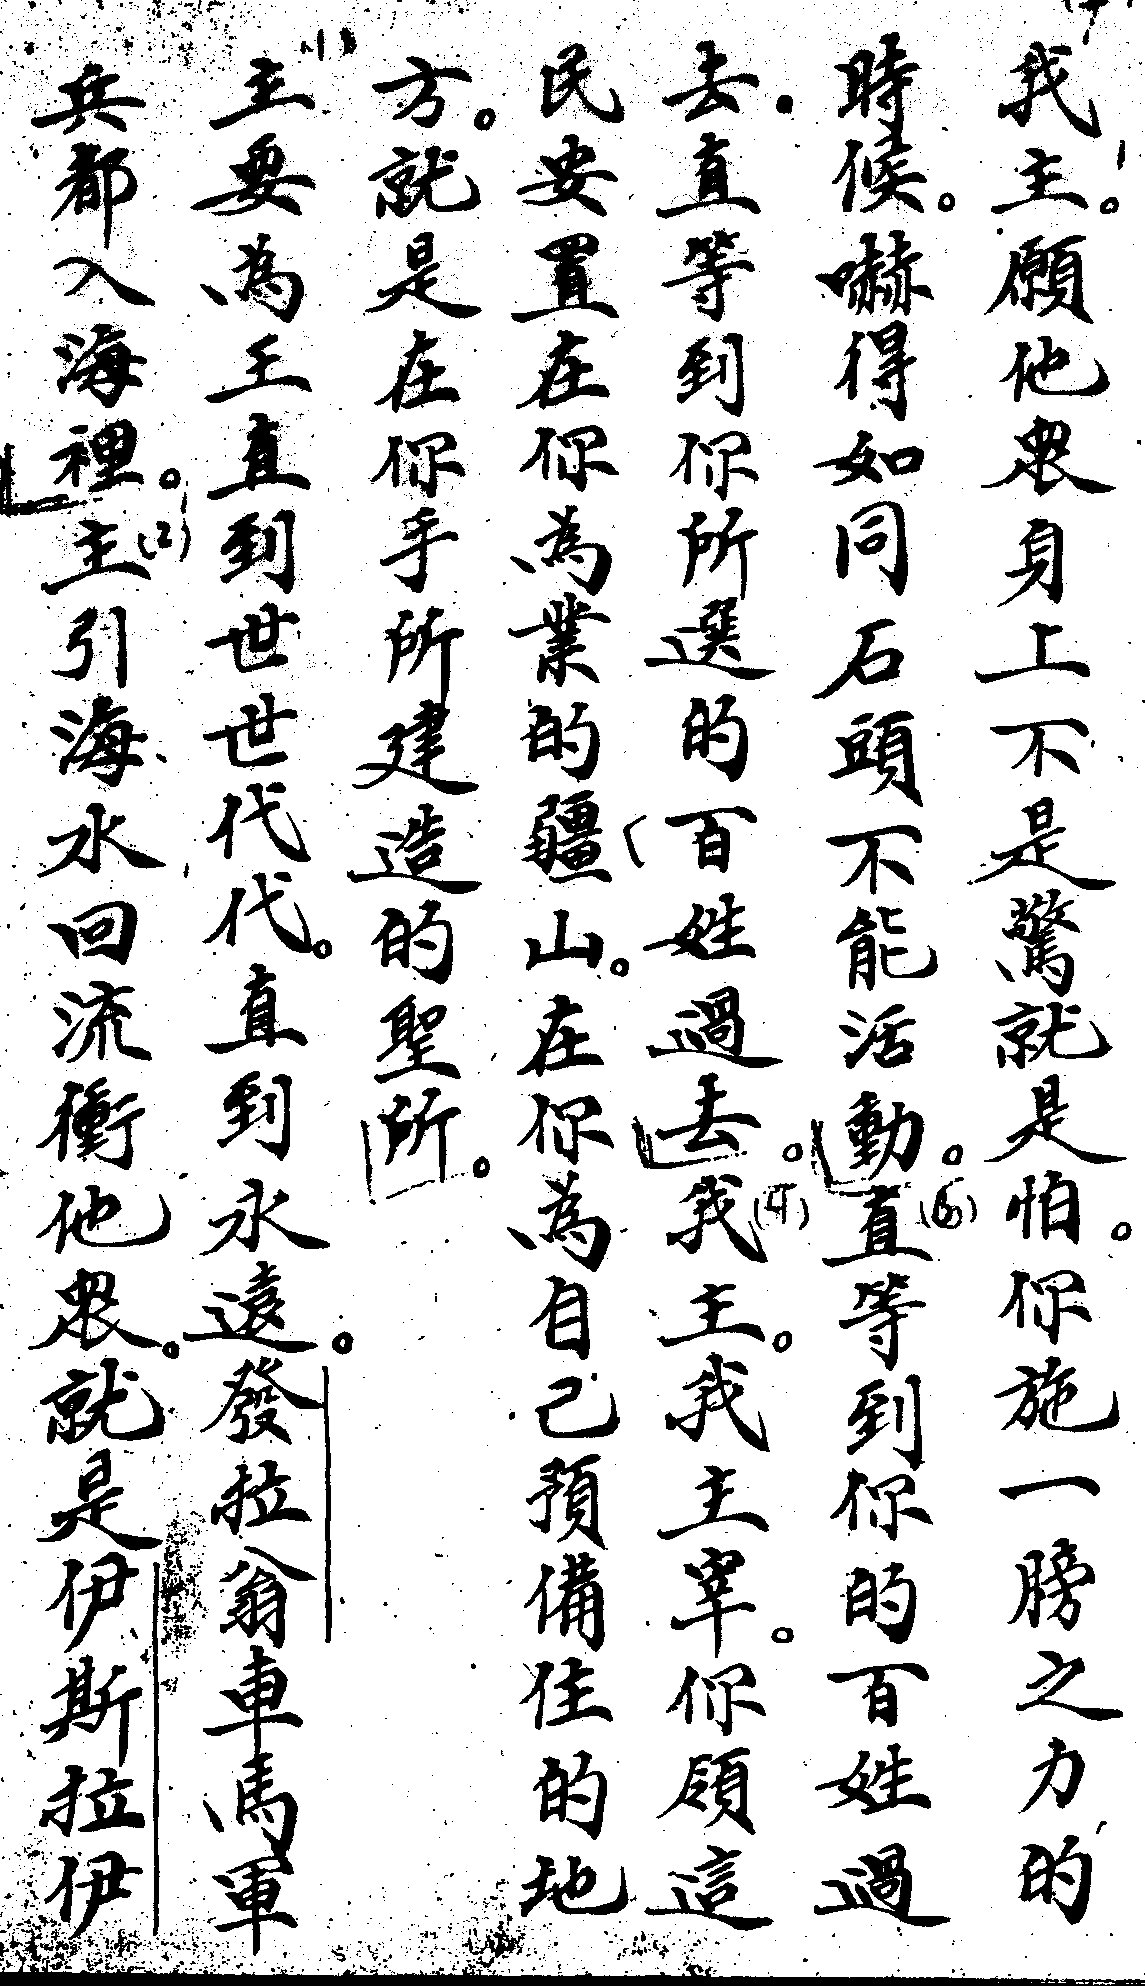 我主。願他衆身上不是驚就是怕。你施一膀之力的
時候。嚇得如同石頭不能活動。直等到你的百姓過
去。直等到你所選的百姓過去。我主。我主宰。你領這
民安置在你為業的疆山。在你為自己預備住的地
方。就是在你手所建造的聖所。
主要為王直到世世代代。直到永遠。發拉翁車馬軍
兵都入海裡。主引海水回流衝他衆。就是伊斯拉伊